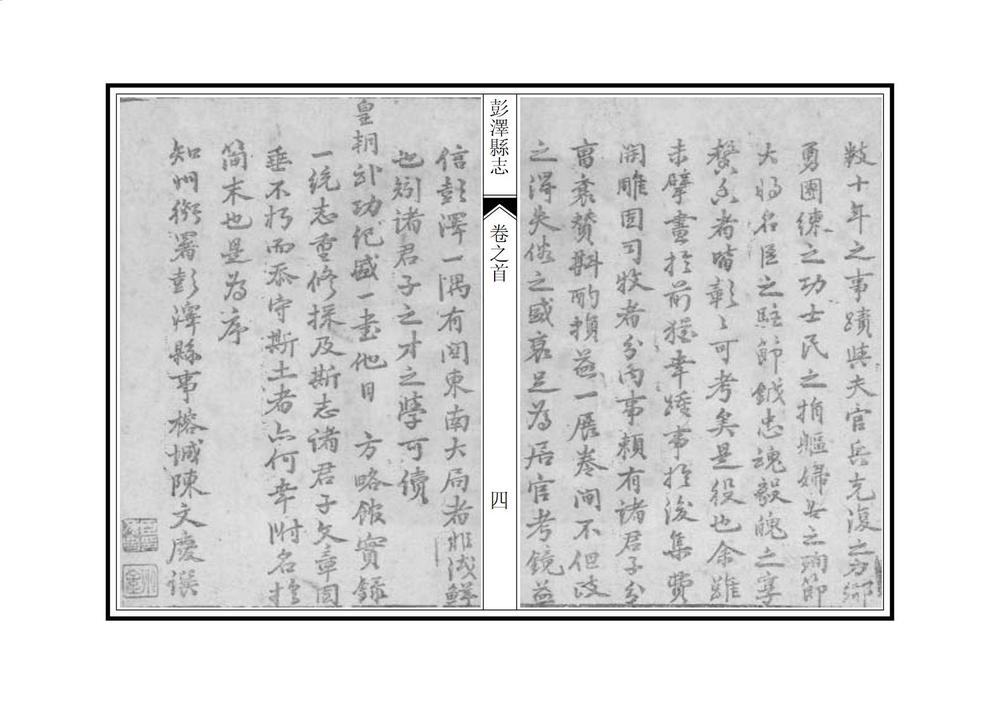 數十年之事蹟與夫官兵克復之力鄉
勇團練之功士民之捐軀婦女之殉節
大將名臣之駐節鉞忠魂毅魄之享
馨香者皆彰彰可考矣是役也余雖
未擘畫於前猶幸踵事於後集費
開雕固司牧者分內事賴有諸君子分
寫衰贊斟酌損益一展卷間不但政
之得失俗之盛衰足為居官考鏡益
彭澤縣志
卷之首
四
信彭澤一隅有關東南大局者非淺鮮
也矧諸君子之才之學可儲
皇朝武功紀盛一書他日方略館實錄
一統志重修採及斯志諸君子文章固
垂不朽而忝守斯土者亦何幸附名於
簡末也是為序
知州銜署彭澤縣事榕城陳文慶撰